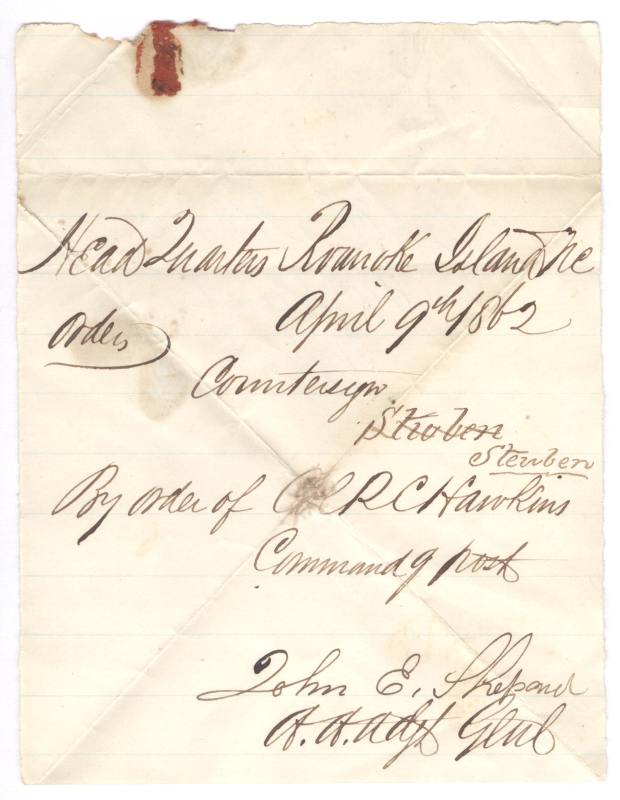 Head Quarters Roanoke Island NC
April 9th 1862
Orders
Countersign
Stuben
Steuben
By order of Col R C Hawkins
Commandg post
John E. Shepard
A. A. Adjt Genl